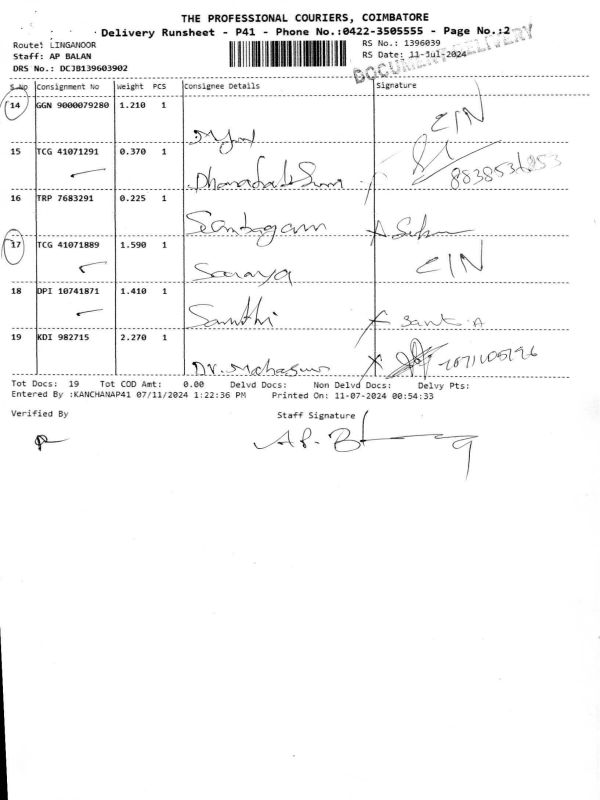 THE PROFESSIONAL COURIERS, COIMBATORE
Delivery Runsheet - P41 - Phone No.:0422-3505555 - Page No.:2
Route: LINGANOOR
RS No.: 1396039
Staff: AP BALAN
RS Date: 11-Jul-2024
DRS No.: DCJB139603902
DOCUMENT DELIVERY
S.No Consignment No Weight PCS Consignee Details Signature
14 GGN 9000079280 1.210 1
CIN
15 TCG 41071291 0.370 1
16 TRP 7683291 0.225 1
17 TCG 41071889 1.590 1
CIN
Saranya
18 DPI 10741871 1.410 1
Santhi
19 KDI 982715 2.270 1
Tot Docs: 19 Tot COD Amt: 0.00 Delvd Docs: Non Delvd Docs: Delvy Pts:
Entered By :KANCHANAP41 07/11/2024 1:22:36 PM Printed On: 11-07-2024 00:54:33
Verified By Staff Signature